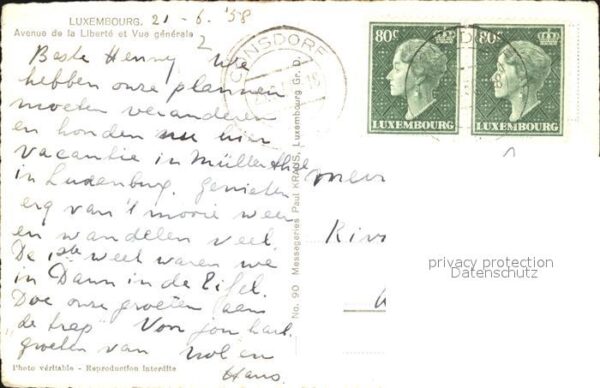 LUXEMBOURG. 21-6.'58
Avenue de la Liberté et Vue générale
Beste Henny, We
hebben onze plannen
moeten veranderen
en houden nu hier
vacantie in Müllerthal
in Luxenburg. Genieten
erg van 't mooie weer
en wandelen veel.
De 1ste week waren we
in Daun in de Eifel.
Doe onze groeten aan
"de trap" Voor jou hart.
groeten van
Hans.
Photo véritable - Reproduction interdite
No. 90 Messageries Paul KRAUS, Luxembourg Gr. D.
CONSDORF
80c
LUXEMBOURG
80c
LUXEMBOURG
privacy protection
Datenschutz